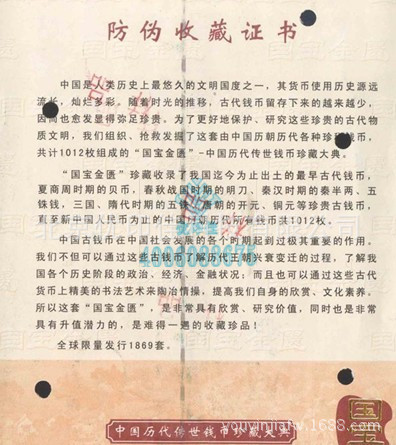 防伪收藏证书
中国是人类历史上最悠久的文明国度之一，其货币使用历史源远
流长，灿烂多彩。随着时光的推移，古代钱币留存下来的越来越少，
因而也愈发显得弥足珍贵。为了更好地保护、研究这些珍贵的古代物
质文明，我们组织、抢救发掘了这套由中国历朝历代各种珍稀钱币，
共计1012枚组成的“国宝金匮”-中国历代传世钱币珍藏大典。
“国宝金匮”珍藏收录了我国迄今为止出土的最早古代钱币，
夏商周时期的贝币，春秋战国时期的明刀，秦汉时期的秦半两、五
铢钱，三国、隋代时期的五铢，唐朝的开元、铜元等珍贵古钱币，
直至新中国人民币为止的中国历朝历代所有钱币共1012枚。
中国古钱币在中国社会发展的各个时期起到过极其重要的作用，
我们不但可以通过这些古钱币了解历代王朝兴衰变迁的过程，了解我
国各个历史阶段的政治、经济、金融状况；而且也可以通过这些古代
货币上精美的书法艺术来陶冶情操，提高我们自身的欣赏、文化素养。
所以这套“国宝金匮”，是非常具有欣赏、研究价值，同时也是非常
具有升值潜力的，是难得一遇的收藏珍品！
全球限量发行1869套。
中国历代传世钱币珍藏大典
youyinjiafw.1688.com